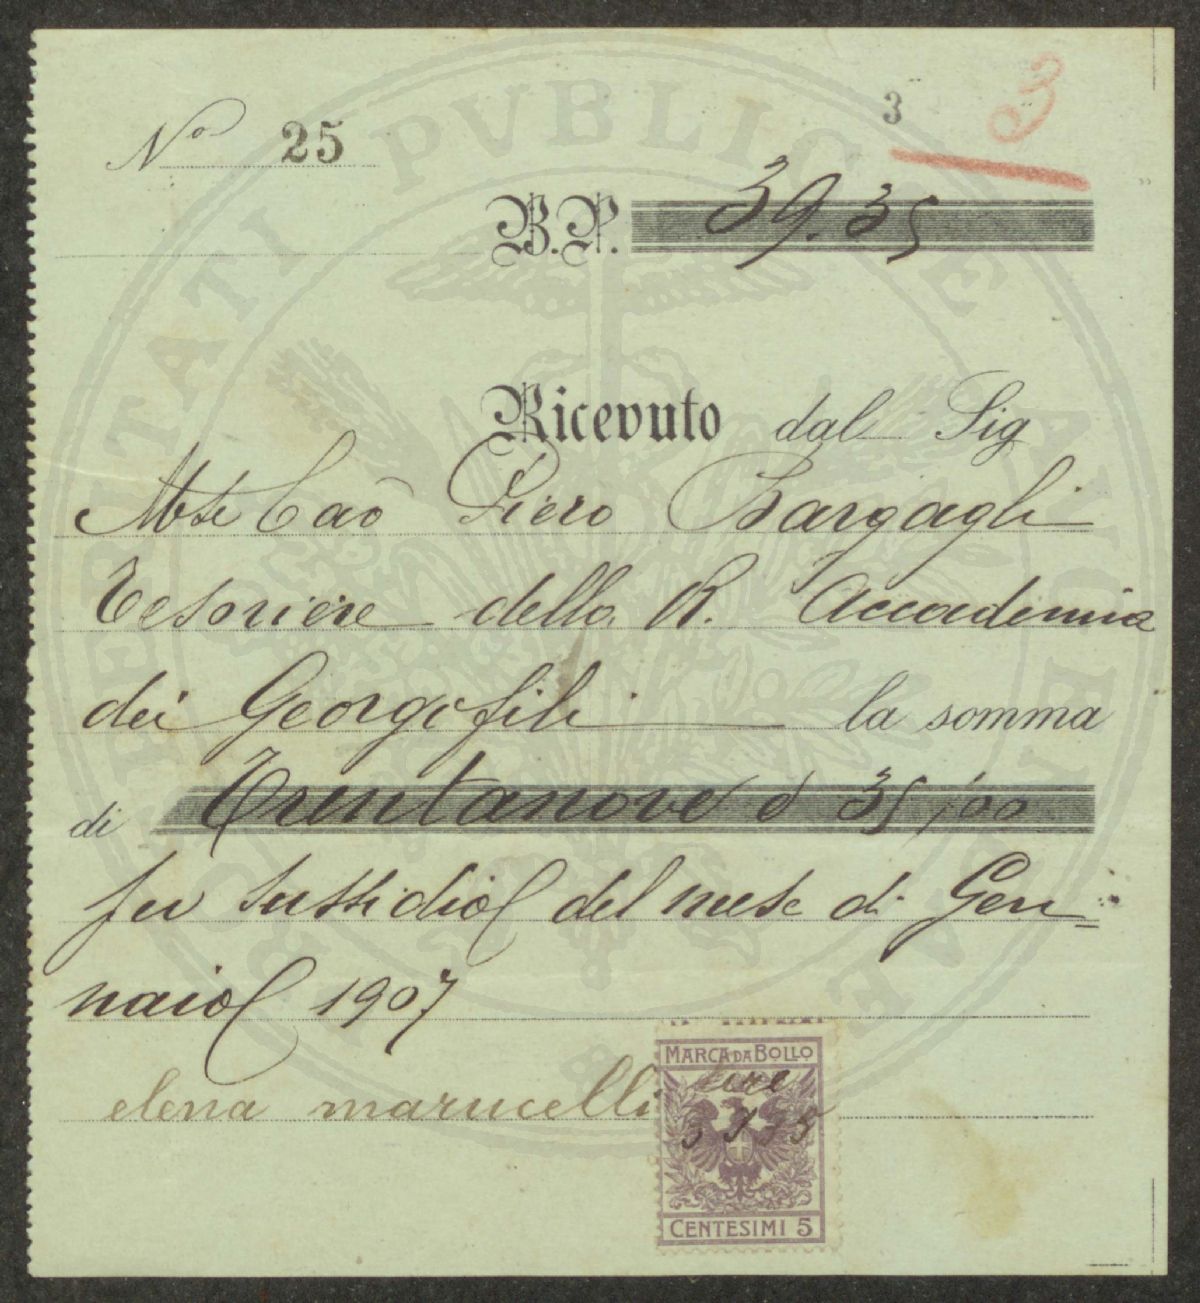 No 25
3
3
B.P. 39.35
Ricevuto dal Sig
Piero Bargagli
Tesoriere della R. Accademia
dei Georgofili la somma
di Trentanove e 35/00
per sussidio del mese di Gen=
naio 1907
elena marucelli
MARCA DA BOLLO
lire
39 35
CENTESIMI 5
PVBLICAE